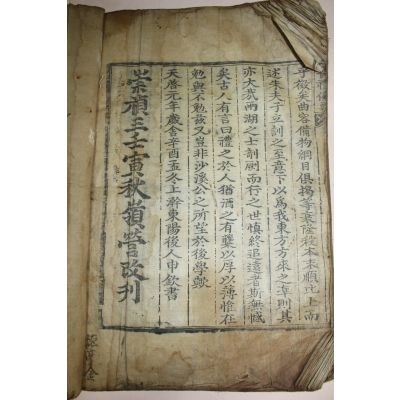 乎徵采曲容備物綱目俱揭等衰隆殺本末順比上而
述朱夫子立訓之至意下以爲我東方方來之準則其
亦大哉兩湖之士剞劂而行之世愼終追遠者斯無憾
矣古人有言曰禮之於人猶酒之有蘖以厚以薄惟在
勉與不勉茲又豈非沙溪公之所望於後學歟
天啓元年歲舍辛酉孟冬上幹東陽後人申欽書
崇禎三壬寅秋嶺營改刊